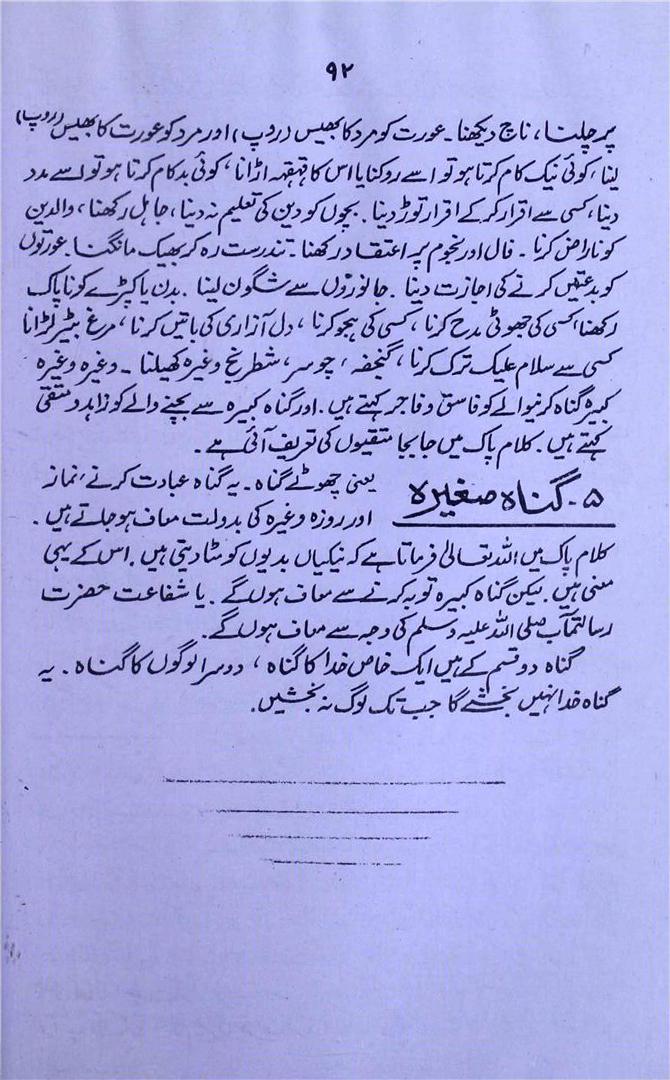 ۹۲
پر چلنا، ناچ دیکھنا۔ عورت کو مرد کا بھیس (روپ) اور مرد کو عورت کا بھیس (روپ)
لینا، کوئی نیک کام کرتا ہو تو اسے روکنا یا اس کا قہقہہ اڑانا، کوئی بد کام کرتا ہو تو اسے مدد
دینا، کسی سے اقرار کر کے اقرار توڑ دینا۔ بچوں کو دین کی تعلیم نہ دینا، جاہل رکھنا، والدین
کو ناراض کرنا۔ فال اور نجوم پر اعتقاد رکھنا۔ تندرست رہ کر بھیک مانگنا۔ عورتوں
کو بدعتیں کرنے کی اجازت دینا۔ جانوروں سے شگون لینا۔ بدن یا کپڑے کو ناپاک
رکھنا، کسی کی جھوٹی مدح کرنا، کسی کی ہجو کرنا، دل آزاری کی باتیں کرنا، مرغ بٹیر لڑانا
کسی سے سلام علیک ترک کرنا، گنجفہ، چوسر، شطرنج وغیرہ کھیلنا۔ وغیرہ وغیرہ
کبیرہ گناہ کرنیوالے کو فاسق و فاجر کہتے ہیں۔ اور گناہ کبیرہ سے بچنے والے کو زاہد و متقی
کہتے ہیں۔ کلام پاک میں جابجا متقیوں کی تعریف آئی ہے۔
۵۔ گناہ صغیرہ یعنی چھوٹے گناہ۔ یہ گناہ عبادت کرنے، نماز
اور روزہ وغیرہ کی بدولت معاف ہو جاتے ہیں۔
کلام پاک میں اللہ تعالیٰ فرماتا ہے کہ نیکیاں بدیوں کو مٹا دیتی ہیں۔ اس کے یہی
معنی ہیں۔ لیکن گناہ کبیرہ توبہ کرنے سے معاف ہوں گے۔ یا شفاعت حضرت
رسالتمآب صلی اللہ علیہ وسلم کی وجہ سے معاف ہوں گے۔
گناہ دو قسم کے ہیں ایک خاص خدا کا گناہ، دوسرا لوگوں کا گناہ۔ یہ
گناہ خدا نہیں بخشے گا جب تک لوگ نہ بخشیں۔